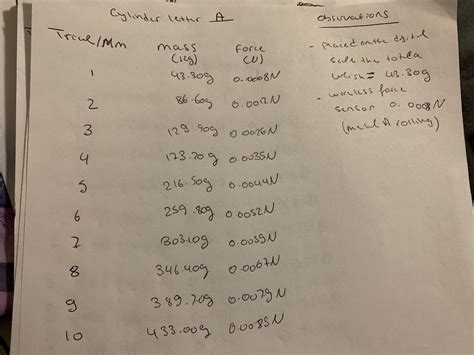 Cylinder letter A
Trial/Mm mass (kg) Force (N)
1 43.30g 0.0008N
2 86.60g
3 129.90g 0.0026N
4 173.20g 0.0035N
5 216.50g 0.0044N
6 259.80g 0.0052N
7 303.10g 0.0059N
8 346.40g 0.0067N
9 389.70g 0.0079N
10 433.00g 0.0085N
observations
- Placed on the digital
scale the total
which = 43.30g
- wireless force
sensor 0.0008N
(metal A rolling)